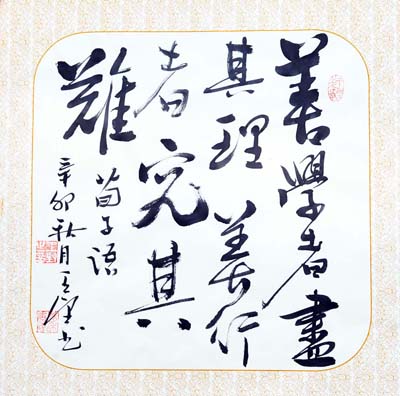 善學者盡
其理善行
者究其
難
荀子語
辛卯秋月书